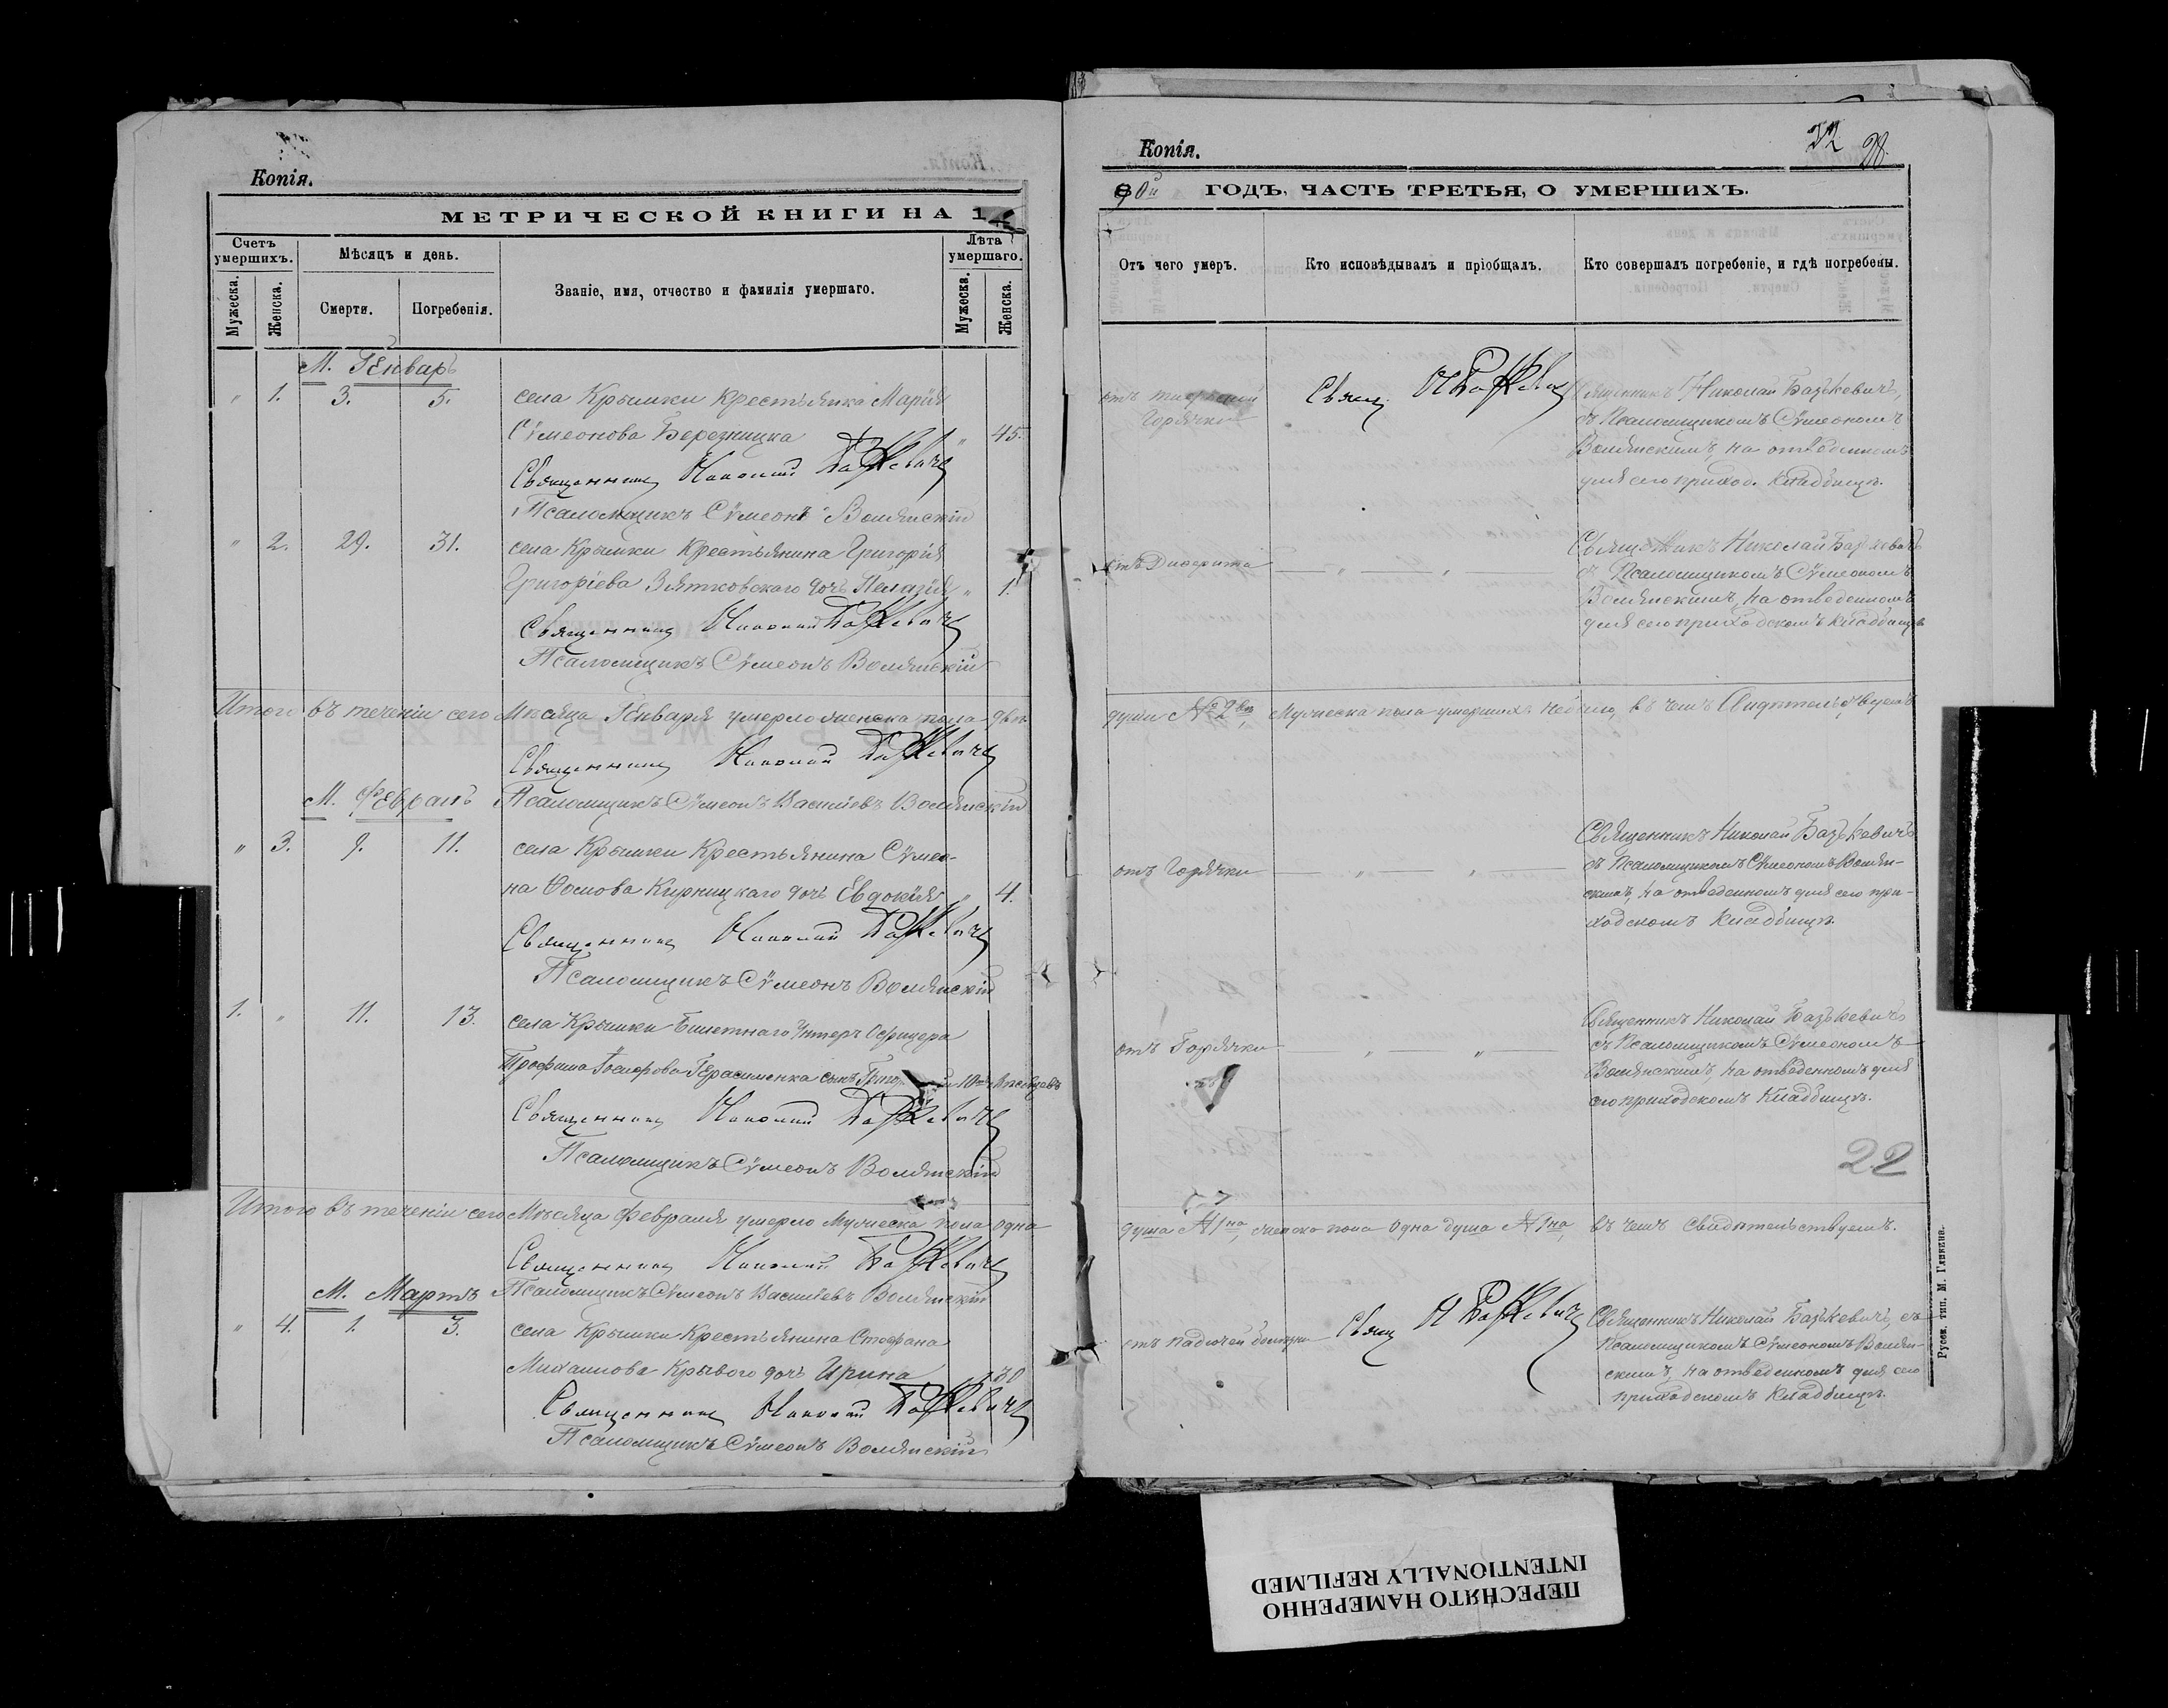 Копія.
МЕТРИЧЕСКОЙ КНИГИ НА 1
Счетъ умершихъ.
Мѣсяцъ и день.
Званіе, имя, отчество и фамилія умершаго.
Лѣта умершаго.
Мужеска.
Женска.
Смерти.
Погребенія.
Мужеска.
Женска.
М. Генварь
" 1. 3. 5. села Крымки Крестьянка Марія
Сѵмеонова Березницка " 45.
Священникъ Николай Базькевичъ
Псаломщикъ Сѵмеонъ Волянскій
" 2. 29. 31. села Крымки Крестьянина Григорія
Григоріева Зятковскаго дочь Пелагія " 1.
Священникъ Николай Базькевичъ
Псаломщикъ Сѵмеонъ Волянскій
Итого въ теченіи сего Мѣсяца Генваря умерло женска пола двѣ
Священникъ Николай Базькевичъ
М. Февраль Псаломщикъ Сѵмеонъ Васильевъ Волянскій
" 3. 9. 11. села Крымки Крестьянина Сѵмео-
на Іосиова Кирницкаго дочь Евдокія " 4.
Священникъ Николай Базькевичъ
Псаломщикъ Сѵмеонъ Волянскій
1. " 11. 13. села Крымки Билетнаго Унтеръ Офицера
Трофима Герасименка сынъ 10 Мѣсяцевъ
Священникъ Николай Базькевичъ
Псаломщикъ Сѵмеонъ Волянскій
Итого въ теченіи сего Мѣсяца Февраля умерло Мужеска пола одна
Священникъ Николай Базькевичъ
М. Мартъ Псаломщикъ Сѵмеонъ Васильевъ Волянскій
" 4. 1. 3. села Крымки Крестьянина Стефана
Михаилова Крывого дочь Ирина 30
Священникъ Николай Базькевичъ
Псаломщикъ Сѵмеонъ Волянскій
Копія.
32
90й ГОДЪ, ЧАСТЬ ТРЕТЬЯ, О УМЕРШИХЪ.
Отъ чего умеръ.
Кто исповѣдывалъ и пріобщалъ.
Кто совершалъ погребеніе, и гдѣ погребены.
отъ
Горячки
Свящ. Н Базькевичъ
Священникъ Николай Базькевичъ,
съ Псаломщикомъ Сѵмеономъ
Волянскимъ, на отведенномъ
для сего приход. Кладбищѣ.
отъ Диферита — " — " —
Священникъ Николай Базькевичъ
съ Псаломщикомъ Сѵмеономъ
Волянскимъ, на отведенномъ
для сего приходскомъ Кладбищѣ
души № 2, Мужеска пола умершихъ небыло, въ чемъ Свидѣтельствуемъ
отъ Горячки — " — " —
Священникъ Николай Базькевичъ
съ Псаломщикомъ Сѵмеономъ Волян-
скимъ, на отведенномъ для сего при-
ходскомъ Кладбищѣ.
отъ Горячки — " — " —
Священникъ Николай Базькевичъ
съ Псаломщикомъ Сѵмеономъ
Волянскимъ, на отведенномъ для
сего приходскомъ Кладбищѣ.
22
душа № 1на, женска пола одна душа № 1на, въ чемъ свидѣтельствуемъ.
отъ падючей болѣзни
Свящ Н Базькевичъ
Священникъ Николай Базькевичъ, съ
Псаломщикомъ Сѵмеономъ Волян-
скимъ, на отведенномъ для сего
приходскомъ Кладбищѣ.
Русск. тип. М. Гликина.
ПЕРЕСНЯТО НАМЕРЕННО
INTENTIONALLY REFILMED